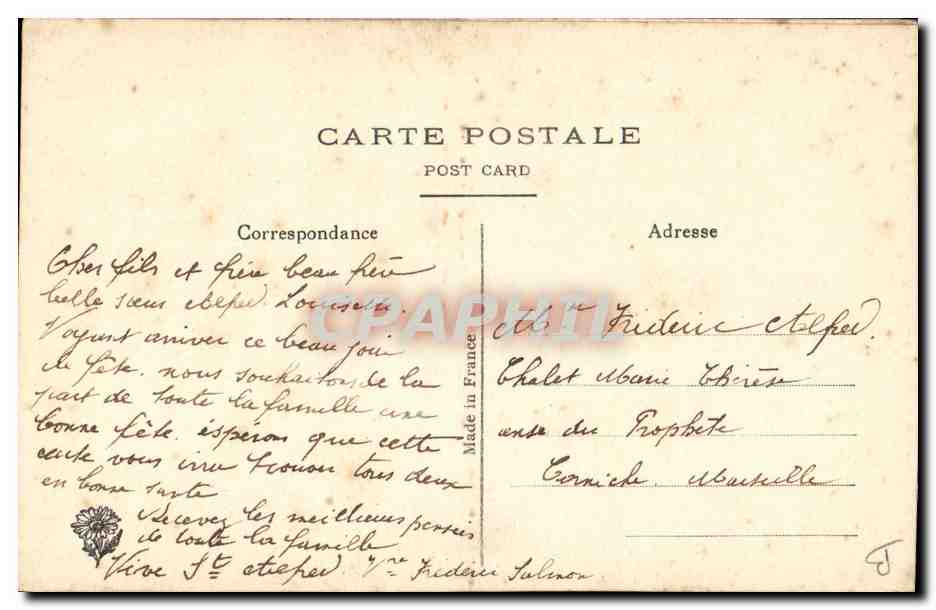 CARTE POSTALE
POST CARD
Correspondance
Cher fils et frère beau frère
belle sœur Alfred Louisette.
Voyant arriver ce beau jour
de fête. nous souhaitons de la
part de toute la famille une
bonne fête. espérons que cette
carte vous trouver tous deux
en bonne
Recevez les meilleures pensées
de toute la famille
Vive St Alfred. Frédéric
Made in France
Adresse
Mr Frédéric Alfred.
Chalet Marie Thérèse
anse du Prophète
Corniche. Marseille
CPAPHIL